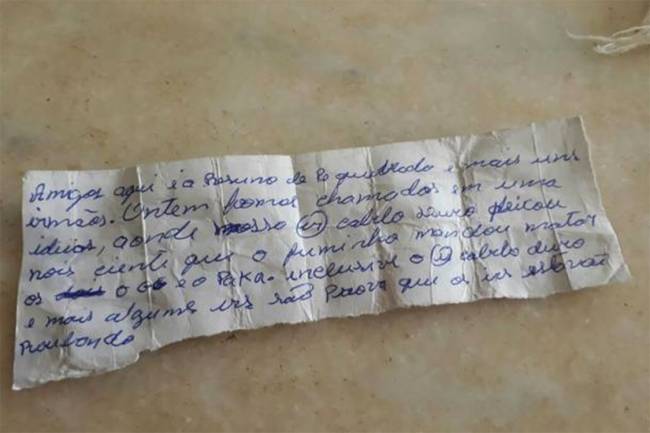 Amigos aqui é a Resumo de Pé quebrado e mais uns
irmãos. Ontem fomos chamados em uma
ideias, aonde nosso (ir) cabelo duro deixou
nois ciente que o fuminho mandou matar
os o GG e o Paka. inclusive o (ir) cabelo duro
e mais alguns irs são Prova que os irs estavão
Roubando